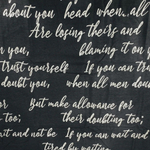 about you head when..all
Are losing theirs and
n you, blaming it on y
trust yourself If you can tru
doubt you, when all men doub
But make allowance for
too; their doubting too;
wait and not be If you can wait and
tired by waiting